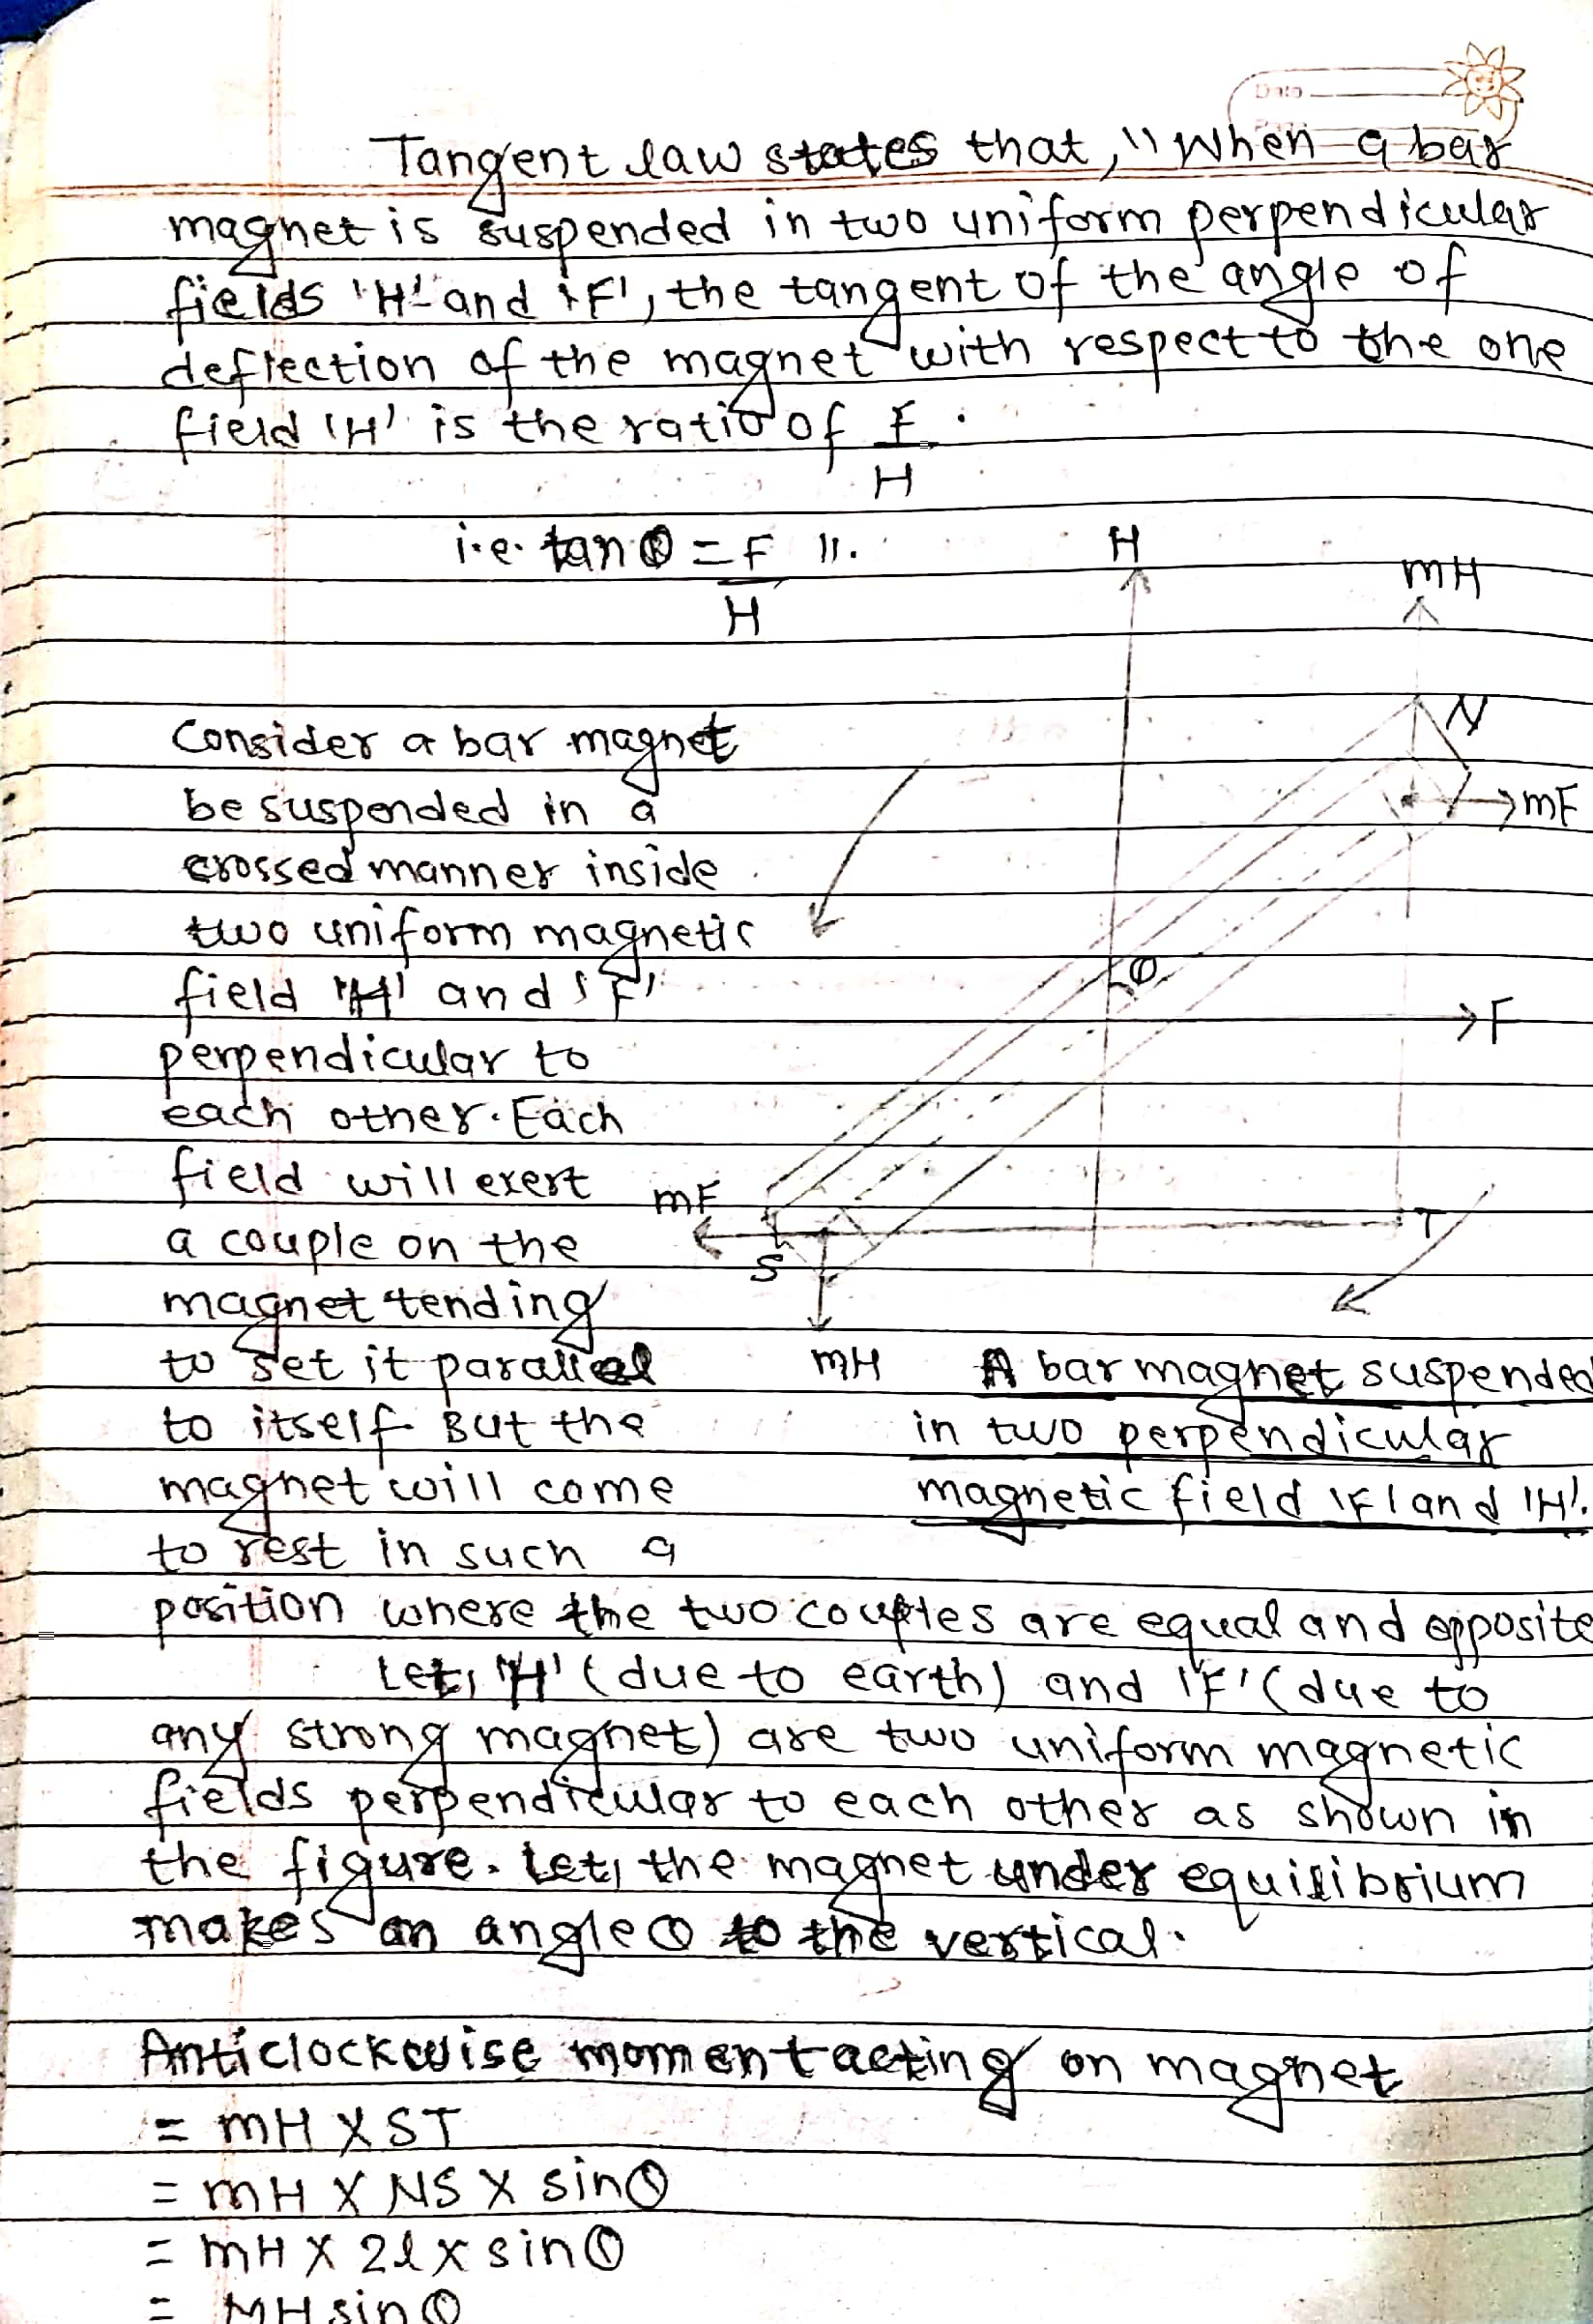 Date
Tangent law states that, "When a bar
magnet is suspended in two uniform perpendicular
fields 'H' and 'F', the tangent of the angle of
deflection of the magnet with respect to the one
field 'H' is the ratio of F/H.
i.e. tan θ = F/H ".
H
mH
N
mF
θ
F
mF
S
T
mH
A bar magnet suspended
in two perpendicular
magnetic field 'F' and 'H'.
Consider a bar magnet
be suspended in a
crossed manner inside
two uniform magnetic
field 'H' and 'F'
perpendicular to
each other. Each
field will exert
a couple on the
magnet tending
to set it parallel
to itself. But the
magnet will come
to rest in such a
position where the two couples are equal and opposite
Let, 'H' (due to earth) and 'F' (due to
any strong magnet) are two uniform magnetic
fields perpendicular to each other as shown in
the figure. Let, the magnet under equilibrium
makes an angle θ to the vertical.
Anticlockwise moment acting on magnet
= mH X ST
= mH X NS X sinθ
= mH X 2l x sinθ
= MH sinθ